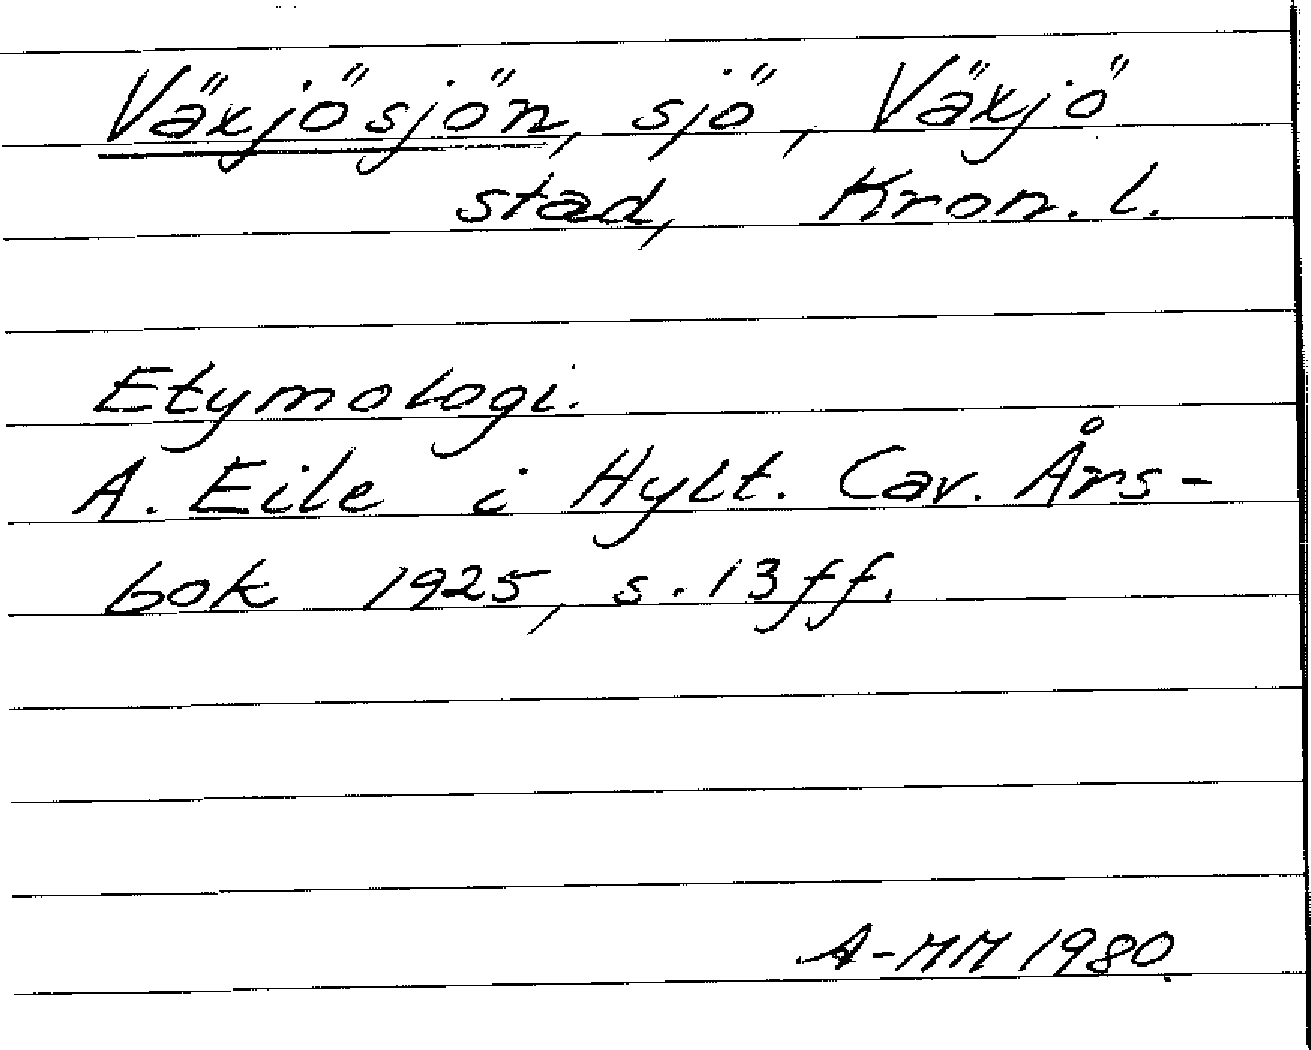 Växjösjön, sjö, Växjö
stad, Kron. l.
Etymologi.
A. Eile i Hylt. Cav. Års-
bok 1925, s. 13 ff.
A-MM 1980